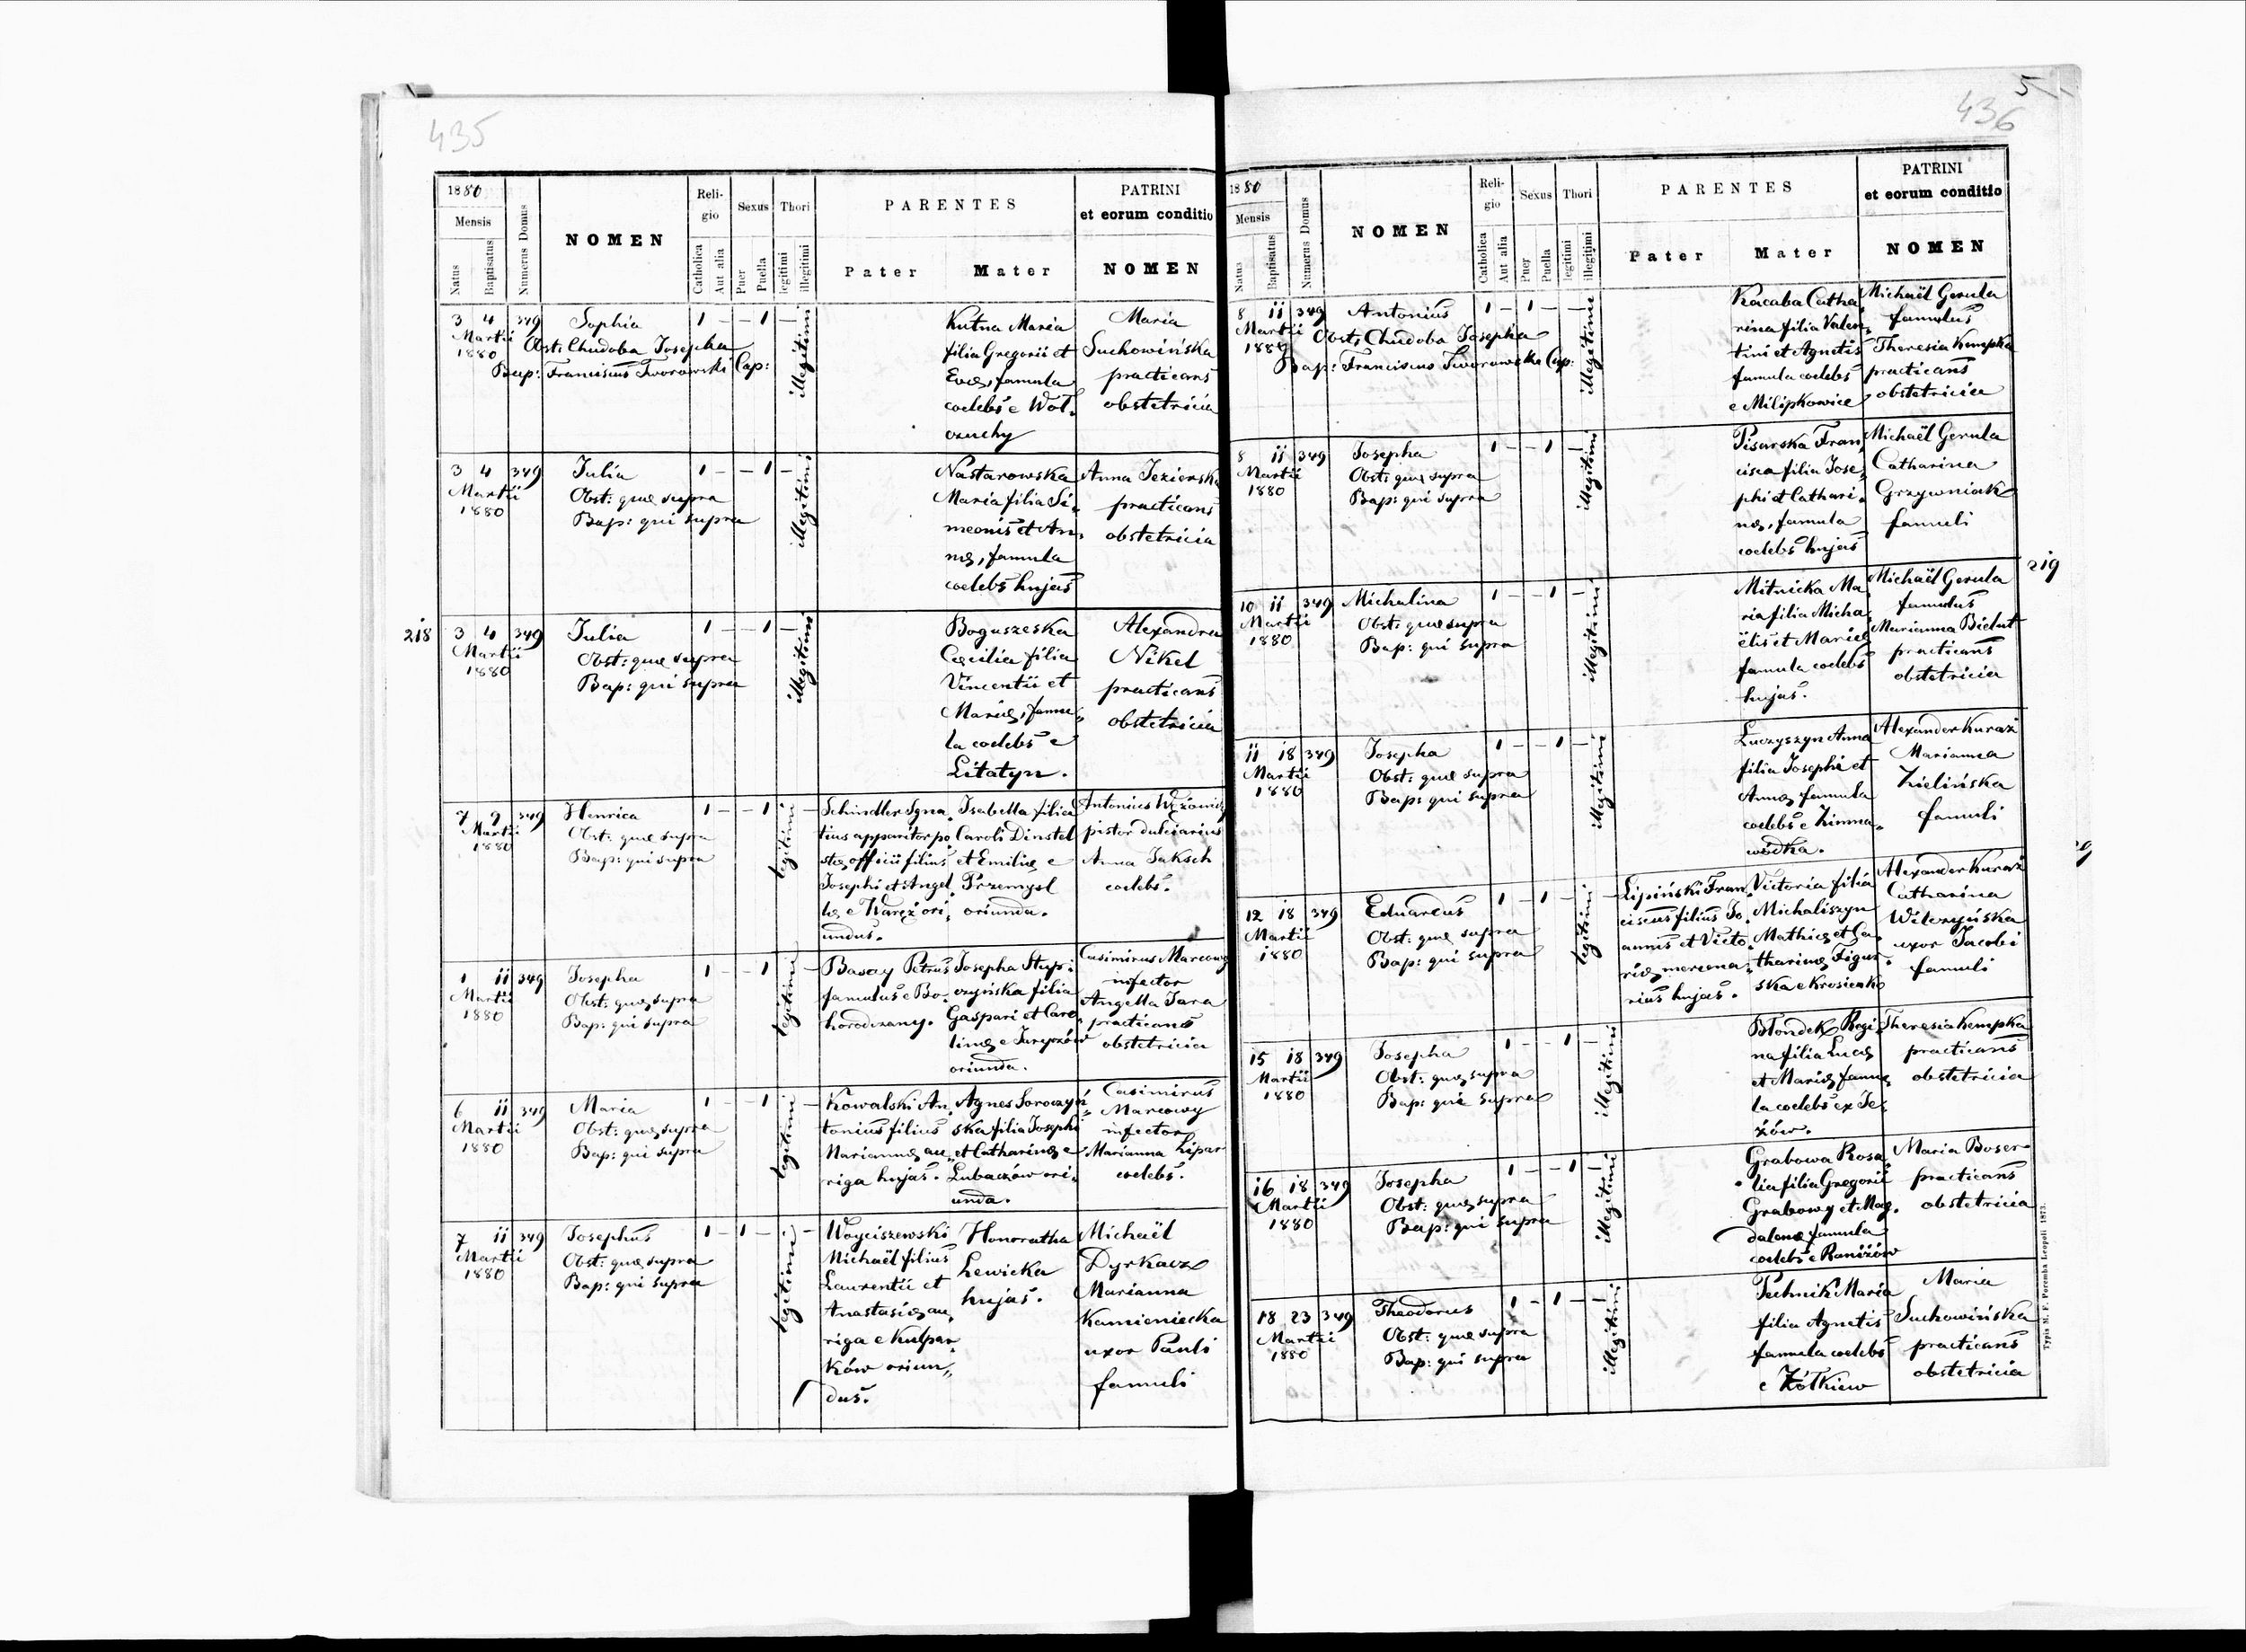 435
1880
Mensis
Natus
Baptisatus
Numerus Domus
NOMEN
Reli-
gio
Catholica
Aut alia
Sexus
Puer
Puella
Thori
legitimi
illegitimi
PARENTES
Pater
Mater
PATRINI
et eorum conditio
NOMEN
3 4 349 Sophia 1 – – 1 –
Martii Obst: Chudoba Josepha
1880
Bap: Franciscus Tworowski Cap:
illegitimi
Kutna Maria
filia Gregorii et
Evae, famula
coelebs e Woł-
czuchy
Maria
Suchowińska
practicans
obstetricia
3 4 349 Julia 1 – – 1 –
Martii Obst: quae supra
1880 Bap: qui supra
illegitimi
Nastarowska
Maria filia Si-
meonis et An-
nae, famula
coelebs hujas
Anna Jezierska
practicans
obstetricia
218
3 4 349 Julia 1 – – 1 –
Martii Obst: quae supra
1880 Bap: qui supra
illegitimi
Boguszeska
Caecilia filia
Vincentii et
Mariae, famu-
la coelebs e
Litatyn.
Alexandra
Nikel
practicans
obstetricia
7 9 349 Henrica 1 – – 1 –
Martii Obst: quae supra
1880 Bap: qui supra
legitimi
Schindler Igna-
tius apparitor po-
stae officii filius
Josephi et Angel-
lae e Waręż ori-
undus.
Isabella filia
Caroli Dinstel
et Emiliae e
Przemysl
oriunda.
Antonius
pistor dulciarius
Anna Jaksch
coelebs.
1 11 349 Josepha 1 – – 1 –
Martii Obst: quae supra
1880 Bap: qui supra
legitimi
Basay Petrus
famulus e Bo-
horodczany.
Josepha Stup-
czyńska filia
Gaspari et Caro-
linae e Jurypzów
oriunda.
Casimirus Marcowy
infector
Angella Jara
practicans
obstetricia
6 11 349 Maria 1 – – 1 –
Martii Obst: quae supra
1880 Bap: qui supra
legitimi
Kowalski An-
tonius filius
Mariannae au-
riga hujas.
Agnes Soroczyń-
ska filia Josephi
et Catharinae e
Lubaczów ori-
unda.
Casimirus
Marcowy
infector
Marianna Lipar
coelebs.
7 11 349 Josephus 1 – 1 – –
Martii Obst: quae supra
1880 Bap: qui supra
legitimi
Woyciszewski
Michaël filius
Laurentii et
Anastasiae au-
riga e Kulpar-
ków oriun-
dus.
Honoratha
Lewicka
hujas.
Michaël
Dyrkacz
Marianna
Kamieniecka
uxor Pauli
famuli
5
436
1880
Mensis
Natus
Baptisatus
Numerus Domus
NOMEN
Reli-
gio
Catholica
Aut alia
Sexus
Puer
Puella
Thori
legitimi
illegitimi
PARENTES
Pater
Mater
PATRINI
et eorum conditio
NOMEN
8 11 349 Antonius 1 – 1 – –
Martii Obst: Chudoba Josepha
1880
Bap: Franciscus Tworowski Cap:
illegitimi
Kacaba Catha-
rina filia Valen-
tini et Agnetis
famula coelebs
e Milipkowice
Michaël Gerula
famulus
Theresia Kempka
practicans
obstetricia
8 11 349 Josepha 1 – – 1 –
Martii Obst: quae supra
1880 Bap: qui supra
illegitimi
Pisarska Fran-
cisca filia Jose-
phi et Cathari-
nae, famula
coelebs hujas
Michaël Gerula
Catharina
Grzywniak
famuli
219
10 11 349 Michalina 1 – – 1 –
Martii Obst: quae supra
1880 Bap: qui supra
illegitimi
Mitnicka Ma-
ria filia Micha-
ëlis et Mariae
famula coelebs
hujas.
Michaël Gerula
famulus
Marianna Bielut
practicans
obstetricia
11 18 349 Josepha 1 – – 1 –
Martii Obst: quae supra
1880 Bap: qui supra
illegitimi
Luczyszyn Anna
filia Josephi et
Annae famula
coelebs e Zimna-
wódka.
Alexander Kuraż
Marianna
Zielińska
famuli
12 18 349 Eduardus 1 – 1 – –
Martii Obst: quae supra
1880 Bap: qui supra
legitimi
Lipiński Fran-
ciscus filius Jo-
annis et Victo-
riae mercena-
rius hujas.
Victoria filia
Michaliszyn
Mathiae et Ca-
tharinae Figur-
ska e Krosienko
Alexander Kuraż
Catharina
Wilczyńska
uxor Jacobi
famuli
15 18 349 Josepha 1 – – 1 –
Martii Obst: quae supra
1880 Bap: qui supra
illegitimi
Błondek Regi-
na filia Lucae
et Mariae famu-
la coelebs ex Je-
żów.
Theresia Kempka
practicans
obstetricia
16 18 349 Josepha 1 – – 1 –
Martii Obst: quae supra
1880 Bap: qui supra
illegitimi
Grabowa Rosa-
lia filia Gregorii
Grabowy et Mag-
dalenae famula
coelebs e Raniżów
Maria Boser
practicans
obstetricia
18 23 349 Theodorus 1 – 1 – –
Martii Obst: quae supra
1880 Bap: qui supra
illegitimi
Pechnik Maria
filia Agnetis
famula coelebs
e Żółkiew
Maria
Suchowińska
practicans
obstetricia
Typis M. F. Poremba Leopoli 1873.